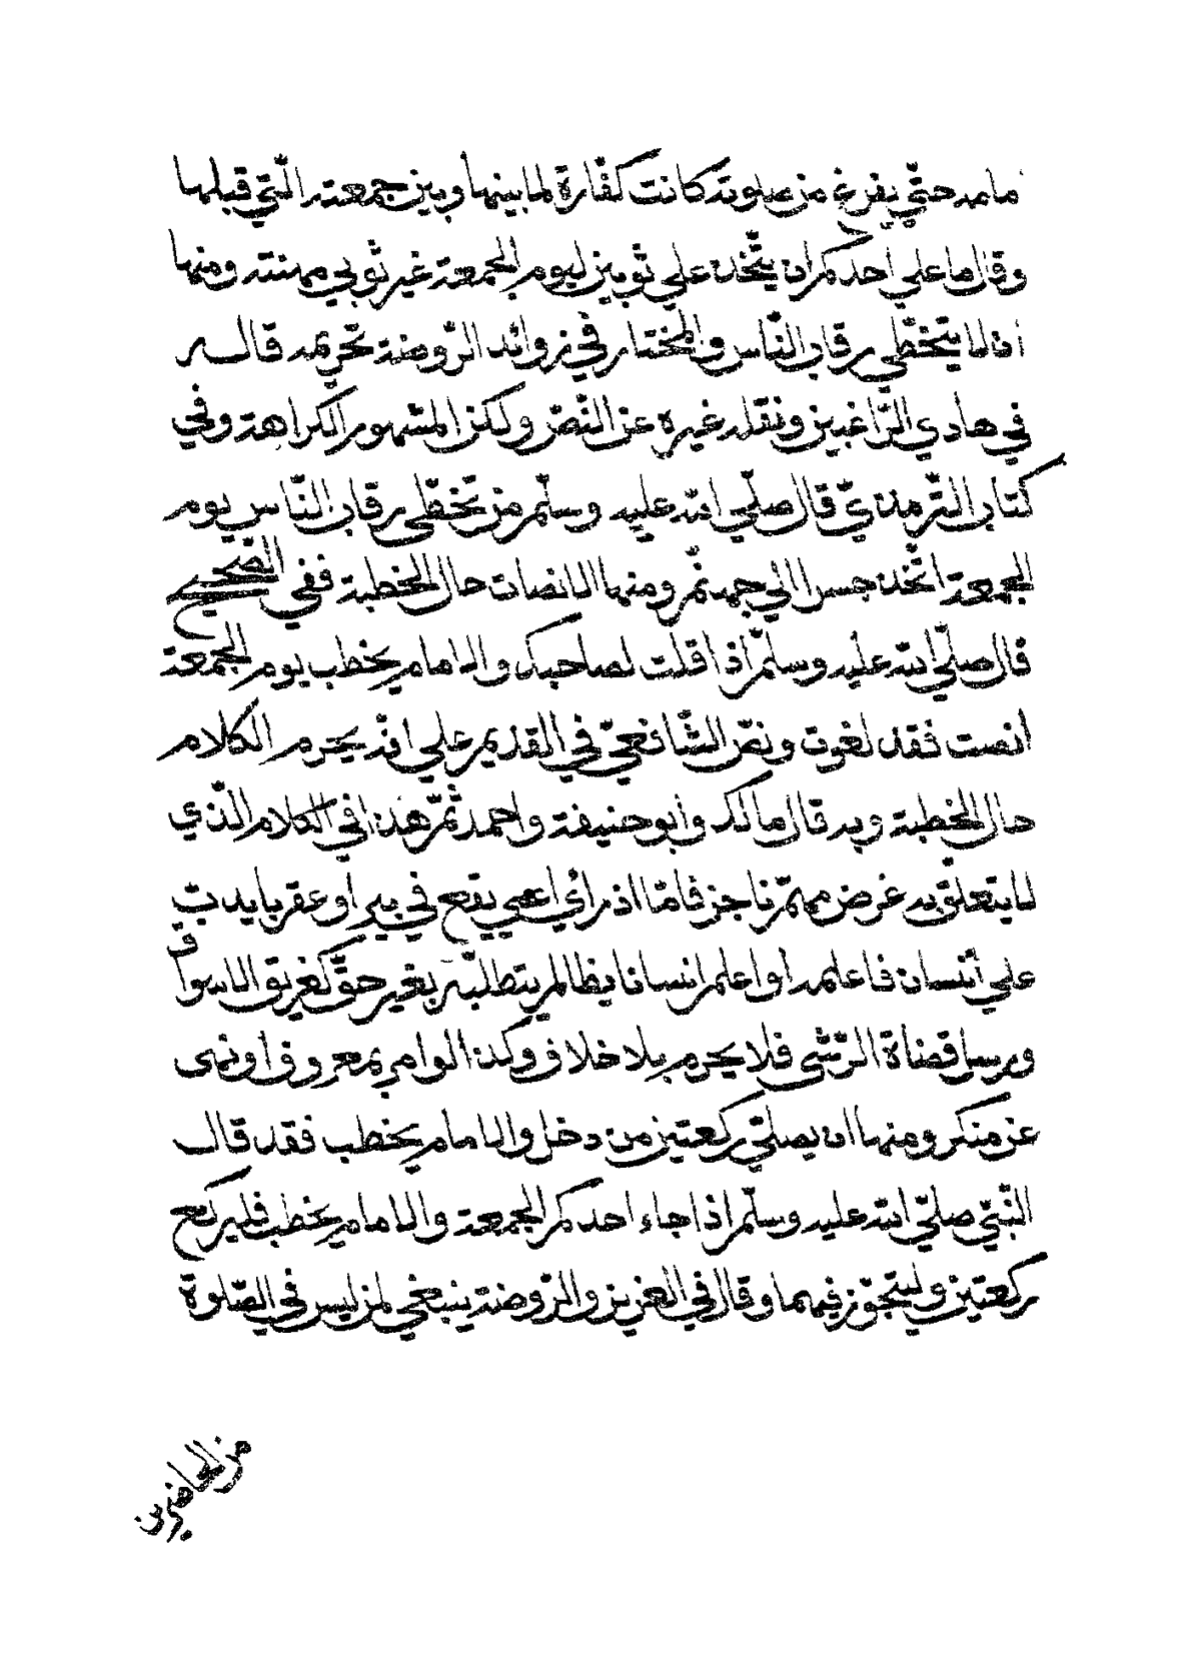 مامه حتّي يفرغ من صلوته كانت كفّارة لما بينها وبين جمعته الّتي قبلها
وقال ما علي احدكم ان يتّخذ علي ثوبين ليوم الجمعة غير ثوبي مهنته ومنها
ان لا يتخطّي رقاب النّاس والمختار في زوائد الرّوضة تحريمه قاله
في هادي الرّاغبين ونقله غيره عن النّصّ ولكن المشهور الكراهة وفي
كتاب التّرمذيّ قال صلّي الله عليه وسلّم من تخطّي رقاب النّاس يوم
الجمعة اتّخذ جسرا الي جهنّم ومنها الانصات حال الخطبة ففي الصّحيح
قال صلّي الله عليه وسلّم اذا قلت لصاحبك والامام يخطب يوم الجمعة
انصت فقد لغوت ونصّ الشّافعيّ في القديم علي انّه يحرم الكلام
حال الخطبة وبه قال مالك وأبو حنيفة واحمد ثمّ هذا في الكلام الّذي
لا يتعلّق به غرض مهمّ ناجز فامّا اذ رأي اعمي يقع في بير او عقربا يدبّ
علي انسان فاعلمه او اعلم انسانا بظالم يتطلّبه بغير حقّ كغريق الاسواق
ورسل قضاة الرّشي فلا يحرم بلا خلاف وكذا لو امر بمعروف او نهي
عن منكر ومنها ان يصلّي ركعتين من دخل والامام يخطب فقد قال
النّبيّ صلّي الله عليه وسلّم اذا جاء احدكم الجمعة والامام يخطب فليركع
ركعتين وليتجوّز فيهما وقال في العزيز والرّوضة ينبغي لمن ليس في الصّلوة
من الحاضرين